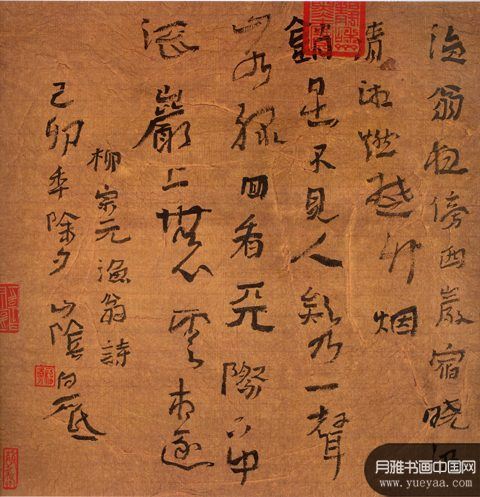 漁翁夜傍西巖宿曉汲
清湘燃楚竹烟
銷日出不見人欸乃一聲
山水綠回看天際下中
流巖上無心雲相逐
柳宗元漁翁詩
己卯年除夕山陰白砥
月雅书画中国网
www.yueyaa.com